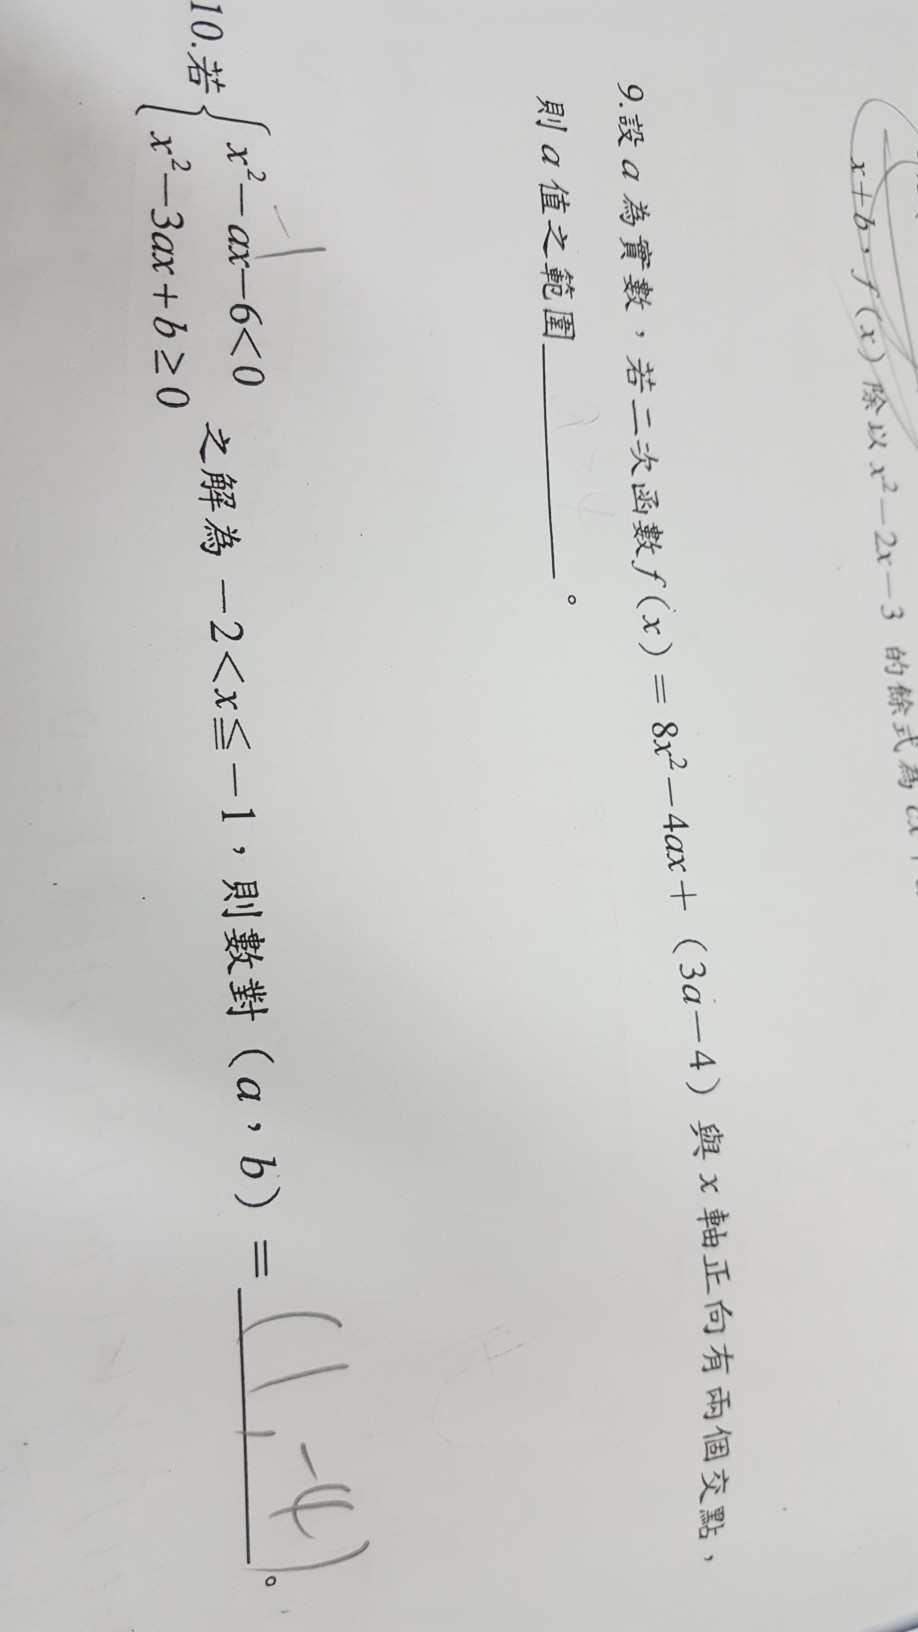 x+b，f(x) 除以 x²−2x−3 的餘式為
9.設 a 為實數，若二次函數 f(x)＝8x²−4ax＋(3a−4) 與 x 軸正向有兩個交點，
則 a 值之範圍＿＿＿＿＿。
10.若{x²−ax−6<0
x²−3ax+b≥0 之解為 −2<x≦−1，則數對 (a，b)＝(1，-4)。
-1